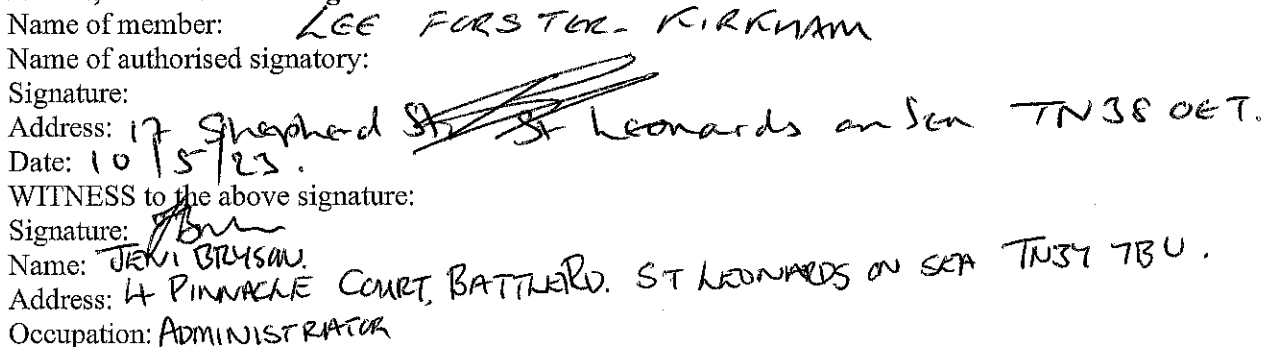 Name of member: LEE FORSTER- KIRKHAM
Name of authorised signatory:
Signature:
Address: 17 Shepherd St St Leonards on Sea TN38 0ET.
Date: 10/5/23.
WITNESS to the above signature:
Signature:
Name: JENI BRYSON.
Address: 4 PINNACLE COURT, BATTLE RD. ST LEONARDS ON SEA TN37 7BU.
Occupation: ADMINISTRATOR